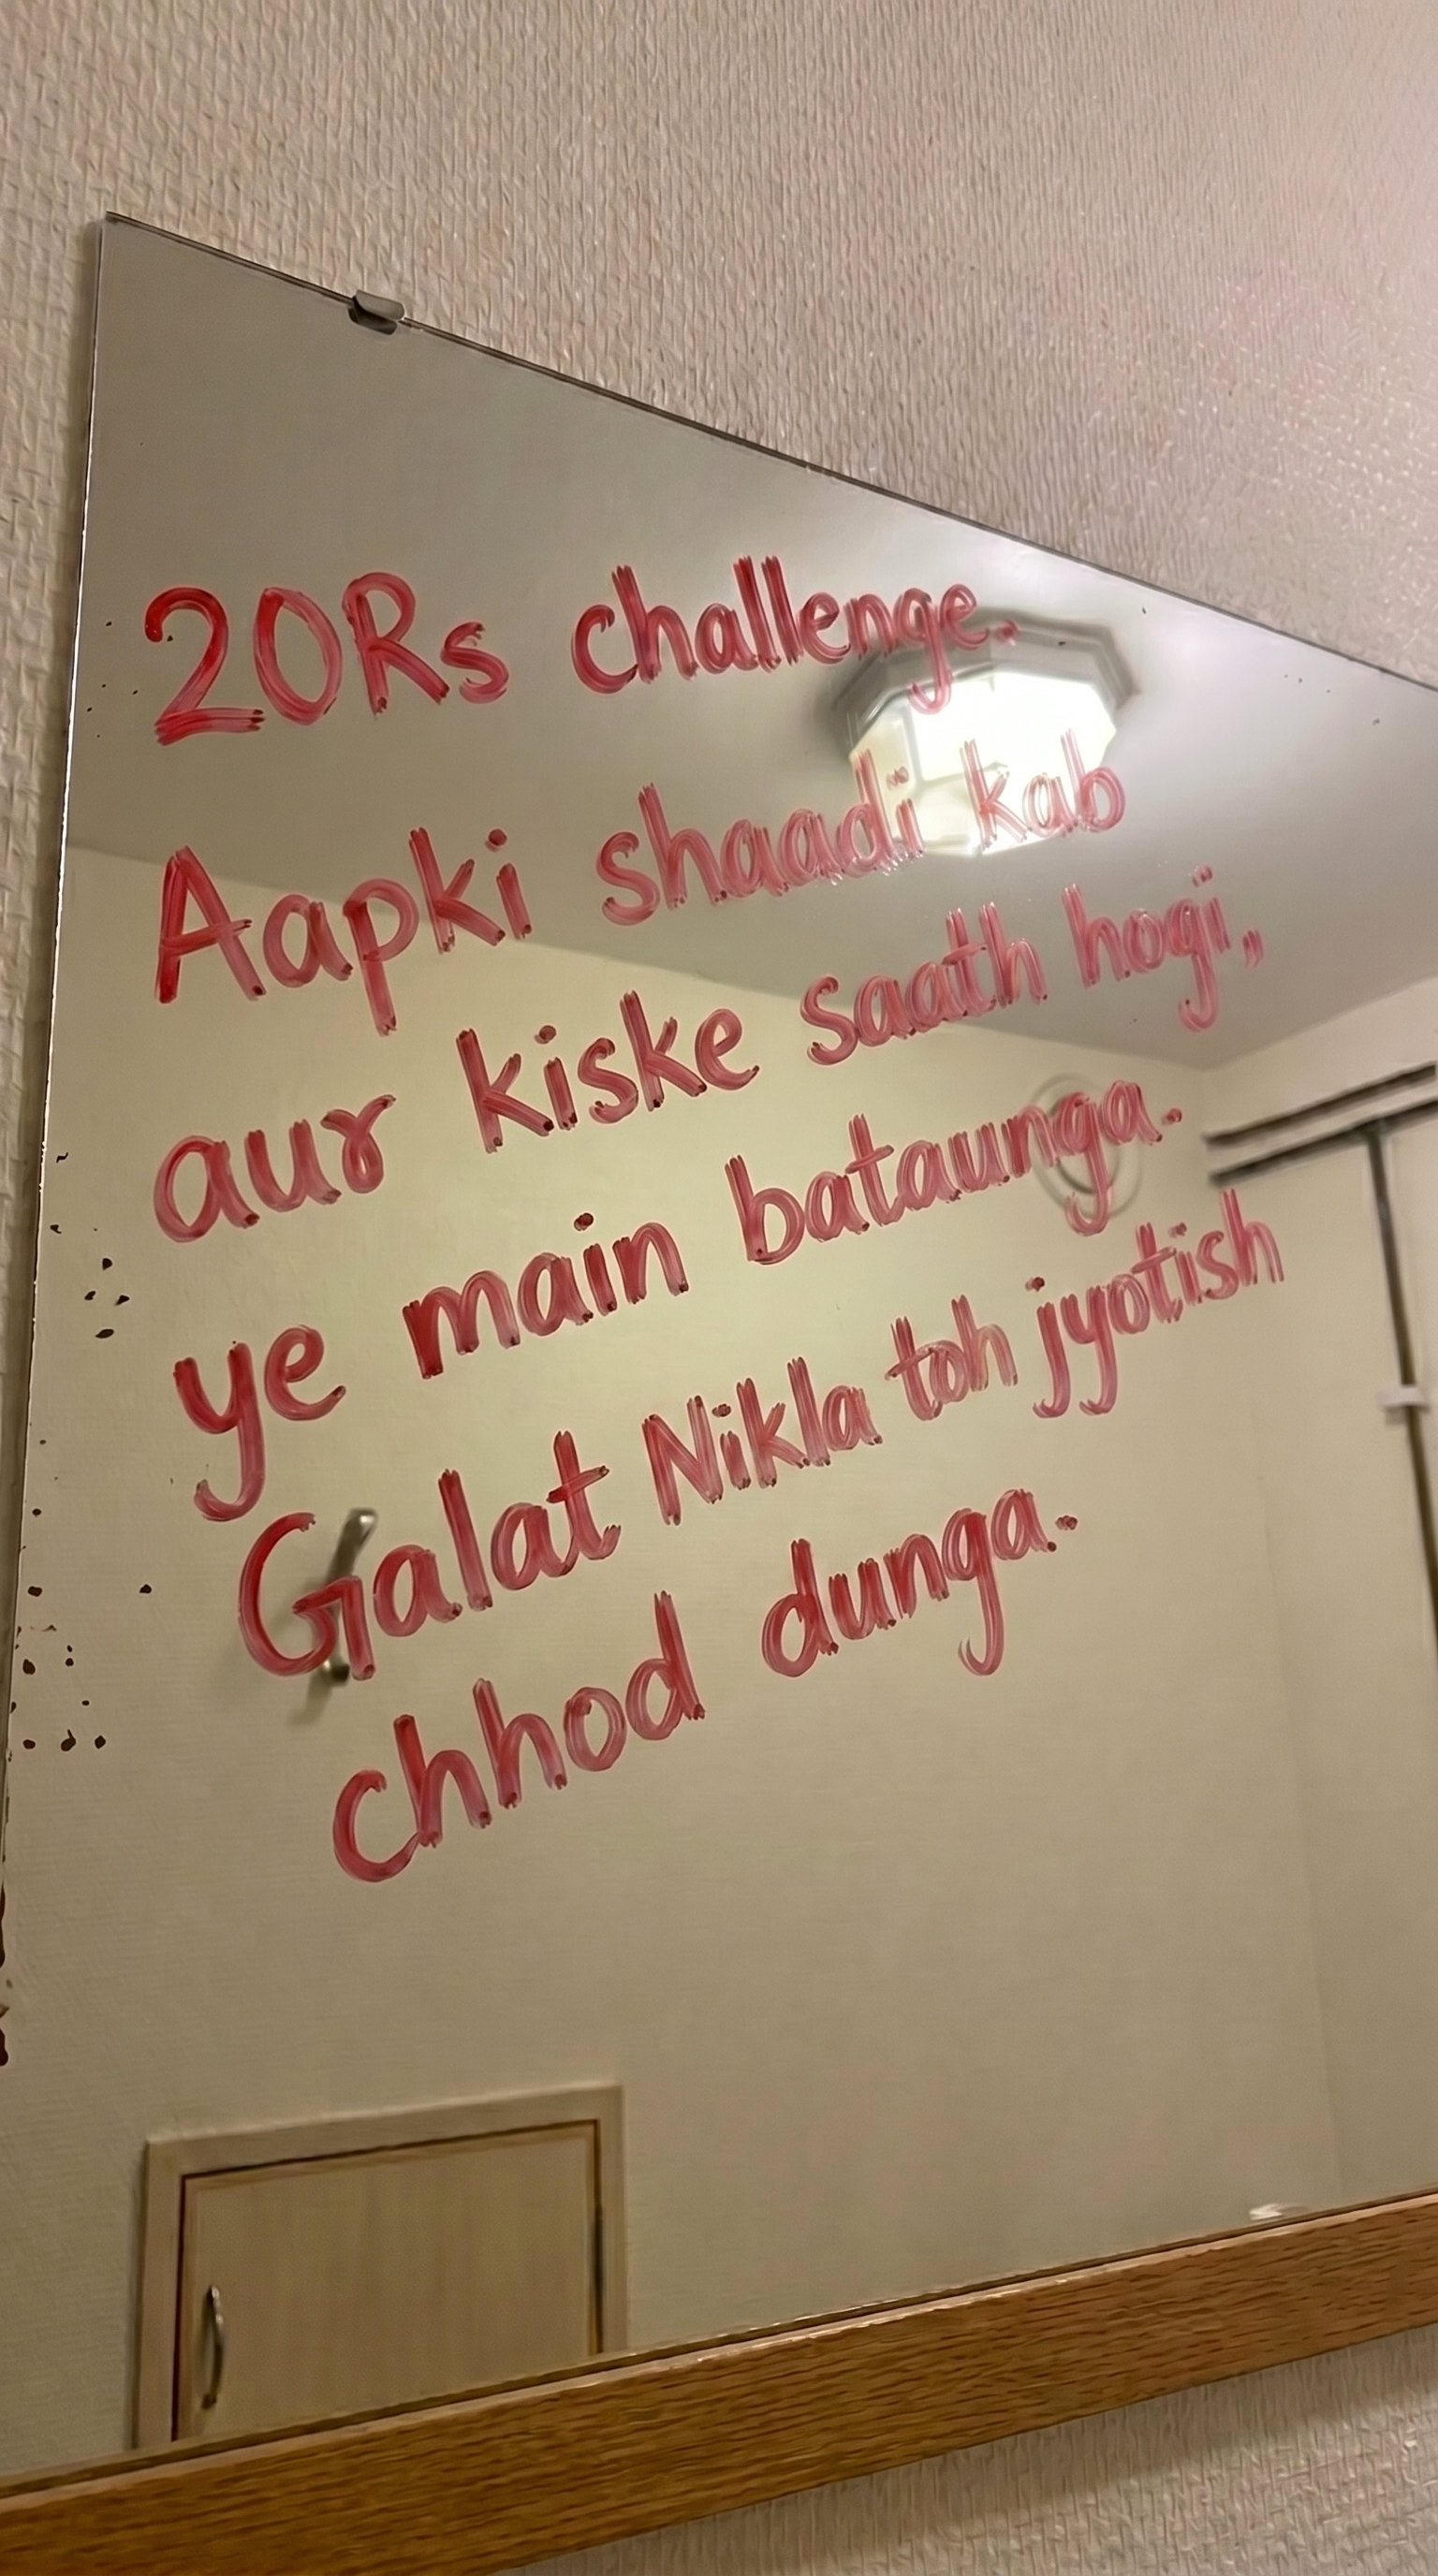 20Rs challenge.
Aapki shaadi kab
aur kiske saath hogi,,
ye main bataunga.
Galat Nikla toh jyotish
chhod dunga.